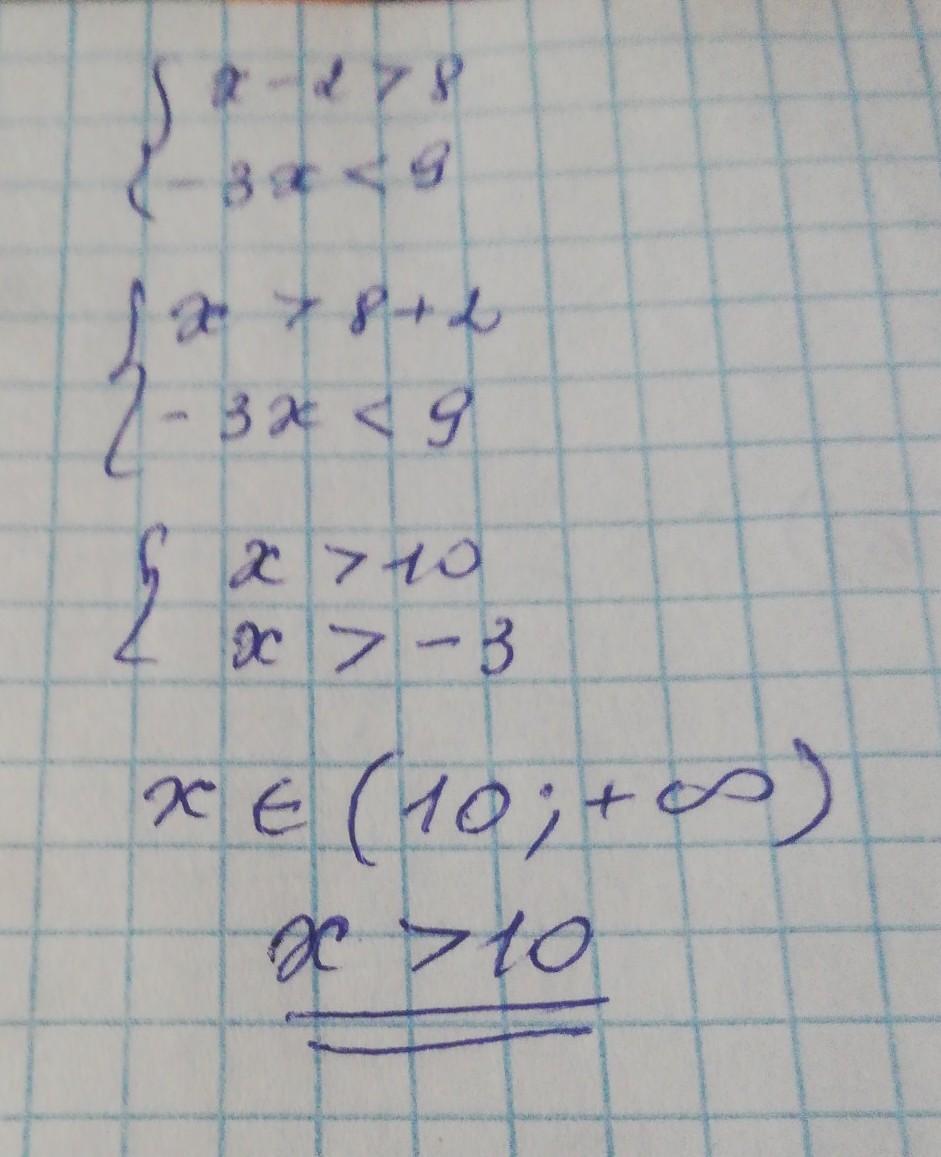 { x - 2 > 8
{ - 3x < 9
{ x > 8 + 2
{ - 3x < 9
{ x > 10
{ x > - 3
x ∈ (10; + ∞)
x > 10